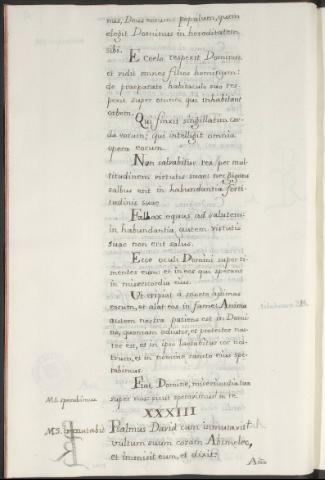 nus, Deus eorum: populum, quem
elegit Dominus in hereditatem
sibi.
E coelo respexit Dominus
et vidit omnes filios hominum:
de praeparato habitaculo suo res-
pexit super omnes qui inhabitant
orbem.
Qui finxit singillatim cor-
da eorum; qui intelligit omnia
opera eorum.
Non salvabitur rex per mul-
titudinem virtutis suae: nec gigans
salbus erit in habundantia forti-
tudinis suae.
Fallax equus ad salutem:
in habundantia, autem virtutis
suae non erit salus.
Ecce oculi Domini super ti-
mentes eum: et in eos qui sperant
in misericordia eius.
Ut eripiat a morte animas
eorum, et alat eos in fame. Anima
autem nostra patiens est in Domi-
no, quoniam adiutor, et protector nos-
ter est, et in ipso laetabitur cor nos-
trum, et in nomine sancto eius spe-
rabimus.
Fiat Domine, misericordia tua
super nos: sicut speravimus in te.
M.S. sperabimus
XXXIII
M.S. inmutabit
Psalmus David cum inmutavit
vultum suum coram Abimelec,
et dimisit eum, et abiit.